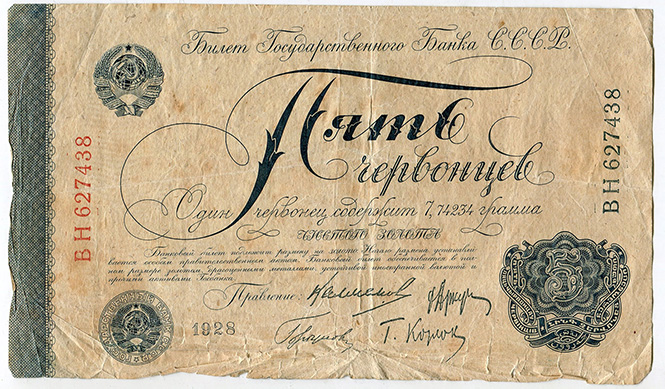 Билет Государственного Банка С.С.С.Р.
Пять
червонцев
Один червонец содержит 7,74234 грамма
чистого золота
Банковый билет подлежит размену на золото. Начало размена устанавли-
вается особым правительственным актом. Банковый билет обеспечивается в пол-
ном размере золотом, драгоценными металлами, устойчивой иностранной валютой и
прочими активами Госбанка
Правление:
Г. Козлов
1928
ВН 627438
ВН 627438
5